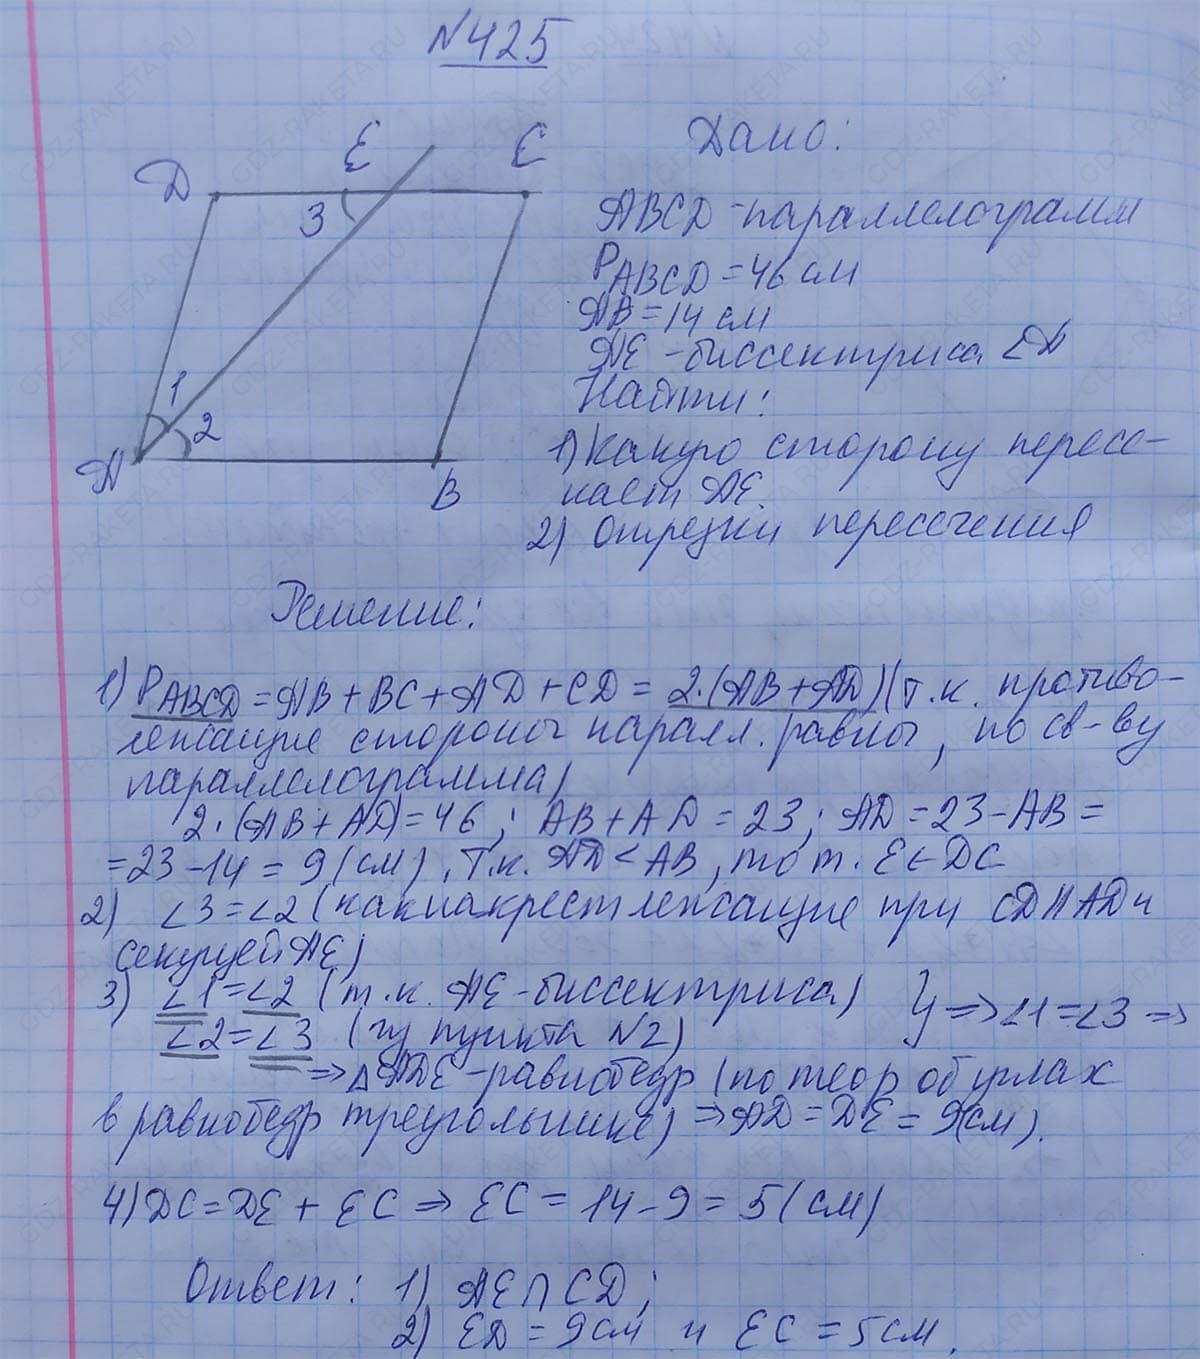 №425
D E C
3
1 2
A B
Дано:
ABCD - параллелограмм
PABCD = 46 см
AB = 14 см
AE - биссектриса ∠A
Найти:
1) Какую сторону пересе-
кает AE.
2) Отрезки пересечения
Решение:
1) PABCD = AB + BC + AD + CD = 2·(AB + AD) (т.к. противо-
лежащие стороны паралл. равны, по св-ву
параллелограмма)
2·(AB + AD) = 46; AB + AD = 23; AD = 23 - AB =
= 23 - 14 = 9 (см). Т.к. AD < AB, то т. E ∈ DC
2) ∠3 = ∠2 (как накрест лежащие при CD || AD и
секущей AE)
3) ∠1 = ∠2 (т.к. AE - биссектриса)
∠2 = ∠3 (из пункта №2) } => ∠1 = ∠3 =>
=> △ADE - равнобедр (по теор об углах
в равнобедр треугольнике) => AD = DE = 9(см).
4) DC = DE + EC => EC = 14 - 9 = 5 (см)
Ответ: 1) AE ∩ CD;
2) ED = 9 см и EC = 5 см.